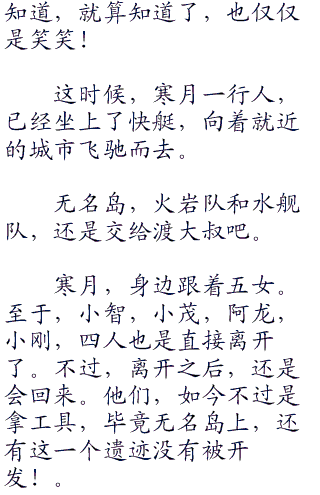 知道，就算知道了，也仅仅
是笑笑！
这时候，寒月一行人，
已经坐上了快艇，向着就近
的城市飞驰而去。
无名岛，火岩队和水舰
队，还是交给渡大叔吧。
寒月，身边跟着五女。
至于，小智，小茂，阿龙，
小刚，四人也是直接离开
了。不过，离开之后，还是
会回来。他们，如今不过是
拿工具，毕竟无名岛上，还
有这一个遗迹没有被开
发！。